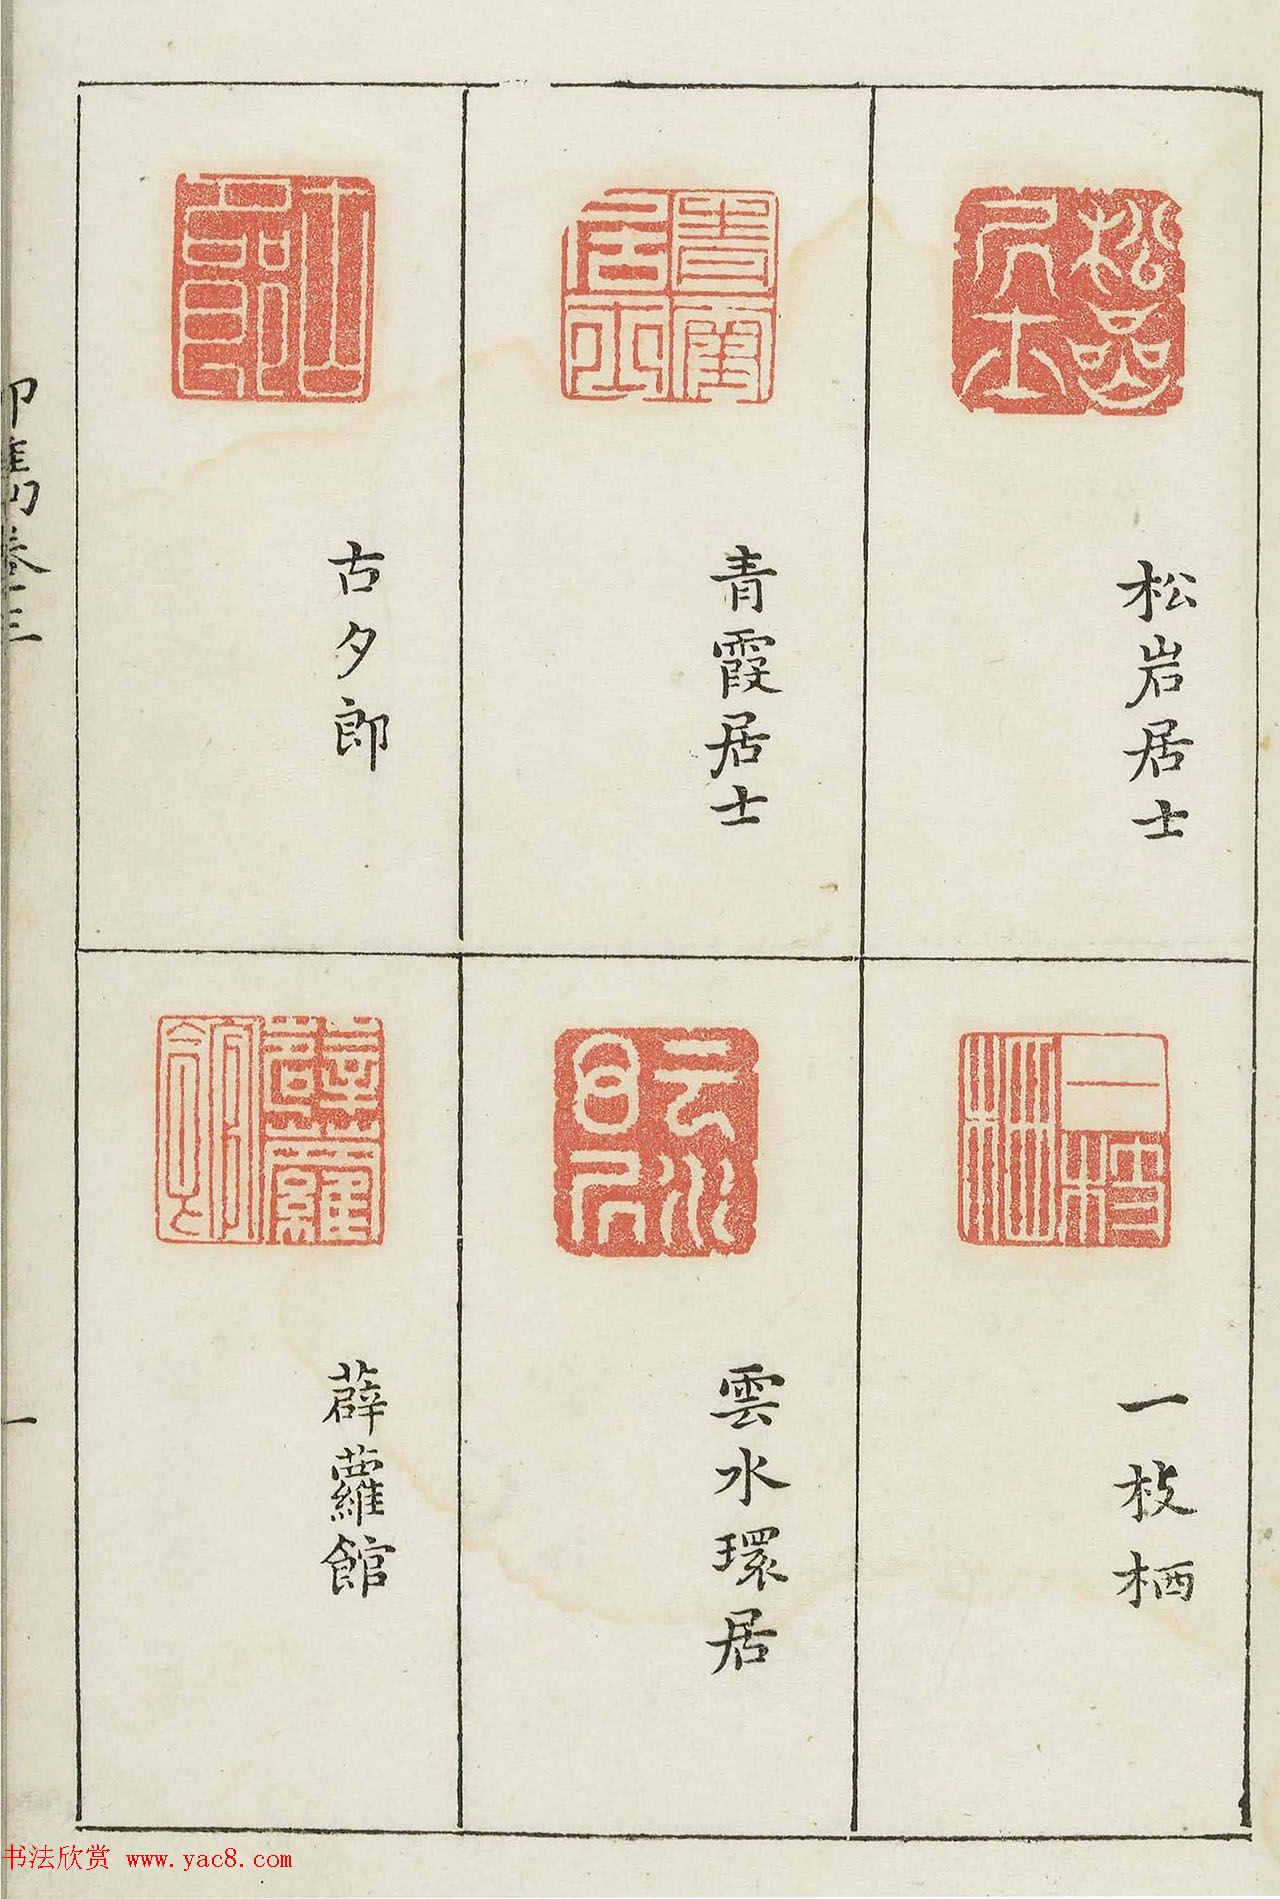 松岩居士
青霞居士
古夕郎
一枝栖
雲水環居
薜蘿館
卷三
一
书法欣赏 www.yac8.com